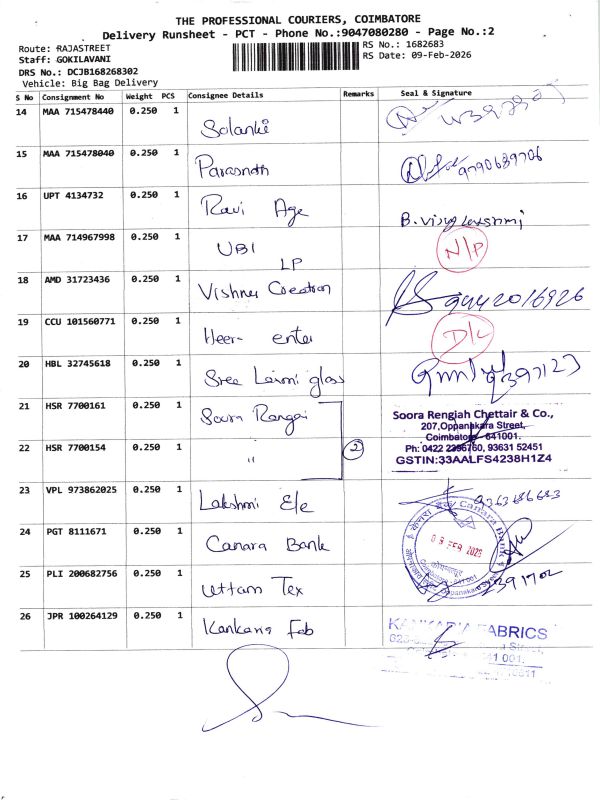 THE PROFESSIONAL COURIERS, COIMBATORE
Delivery Runsheet - PCT - Phone No.:9047080280 - Page No.:2
Route: RAJASTREET
RS No.: 1682683
Staff: GOKILAVANI
RS Date: 09-Feb-2026
DRS No.: DCJB168268302
Vehicle: Big Bag Delivery
S No Consignment No Weight PCS Consignee Details Remarks Seal & Signature
14 MAA 715478440 0.250 1 Solanki
15 MAA 715478040 0.250 1 Parasnath 9790639706
16 UPT 4134732 0.250 1 Ravi Age B. Vijayalakshmi
17 MAA 714967998 0.250 1 UBI LP N/P
18 AMD 31723436 0.250 1 Vishnu Creation
19 CCU 101560771 0.250 1 Heer enter D/L
20 HBL 32745618 0.250 1 Sree Laxmi glass
21 HSR 7700161 0.250 1 Soora Rengai
22 HSR 7700154 0.250 1 " 2
Soora Rengiah Chettair & Co.,
207,Oppanakara Street,
Coimbatore 641001.
Ph: 0422 2396760, 93631 52451
GSTIN:33AALFS4238H1Z4
23 VPL 973862025 0.250 1 Lakshmi Ele 9363686683
24 PGT 8111671 0.250 1 Canara Bank
Canara Bank
09 FEB 2026
25 PLI 200682756 0.250 1 Uttam Tex
26 JPR 100264129 0.250 1 Kankaria Fab
KANKARIA FABRICS